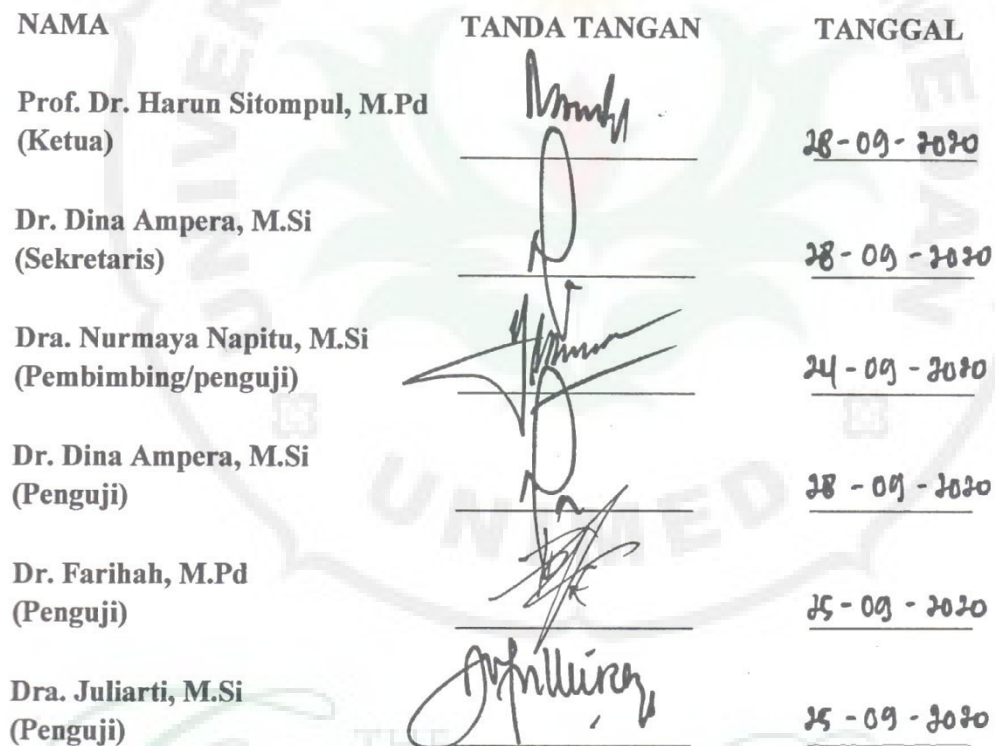 NAMA TANDA TANGAN TANGGAL
Prof. Dr. Harun Sitompul, M.Pd
(Ketua) 28-09-2020
Dr. Dina Ampera, M.Si
(Sekretaris) 28-09-2020
Dra. Nurmaya Napitu, M.Si
(Pembimbing/penguji) 24-09-2020
Dr. Dina Ampera, M.Si
(Penguji) 28-09-2020
Dr. Farihah, M.Pd
(Penguji) 25-09-2020
Dra. Juliarti, M.Si
(Penguji) 25-09-2020
UNIMED
THE